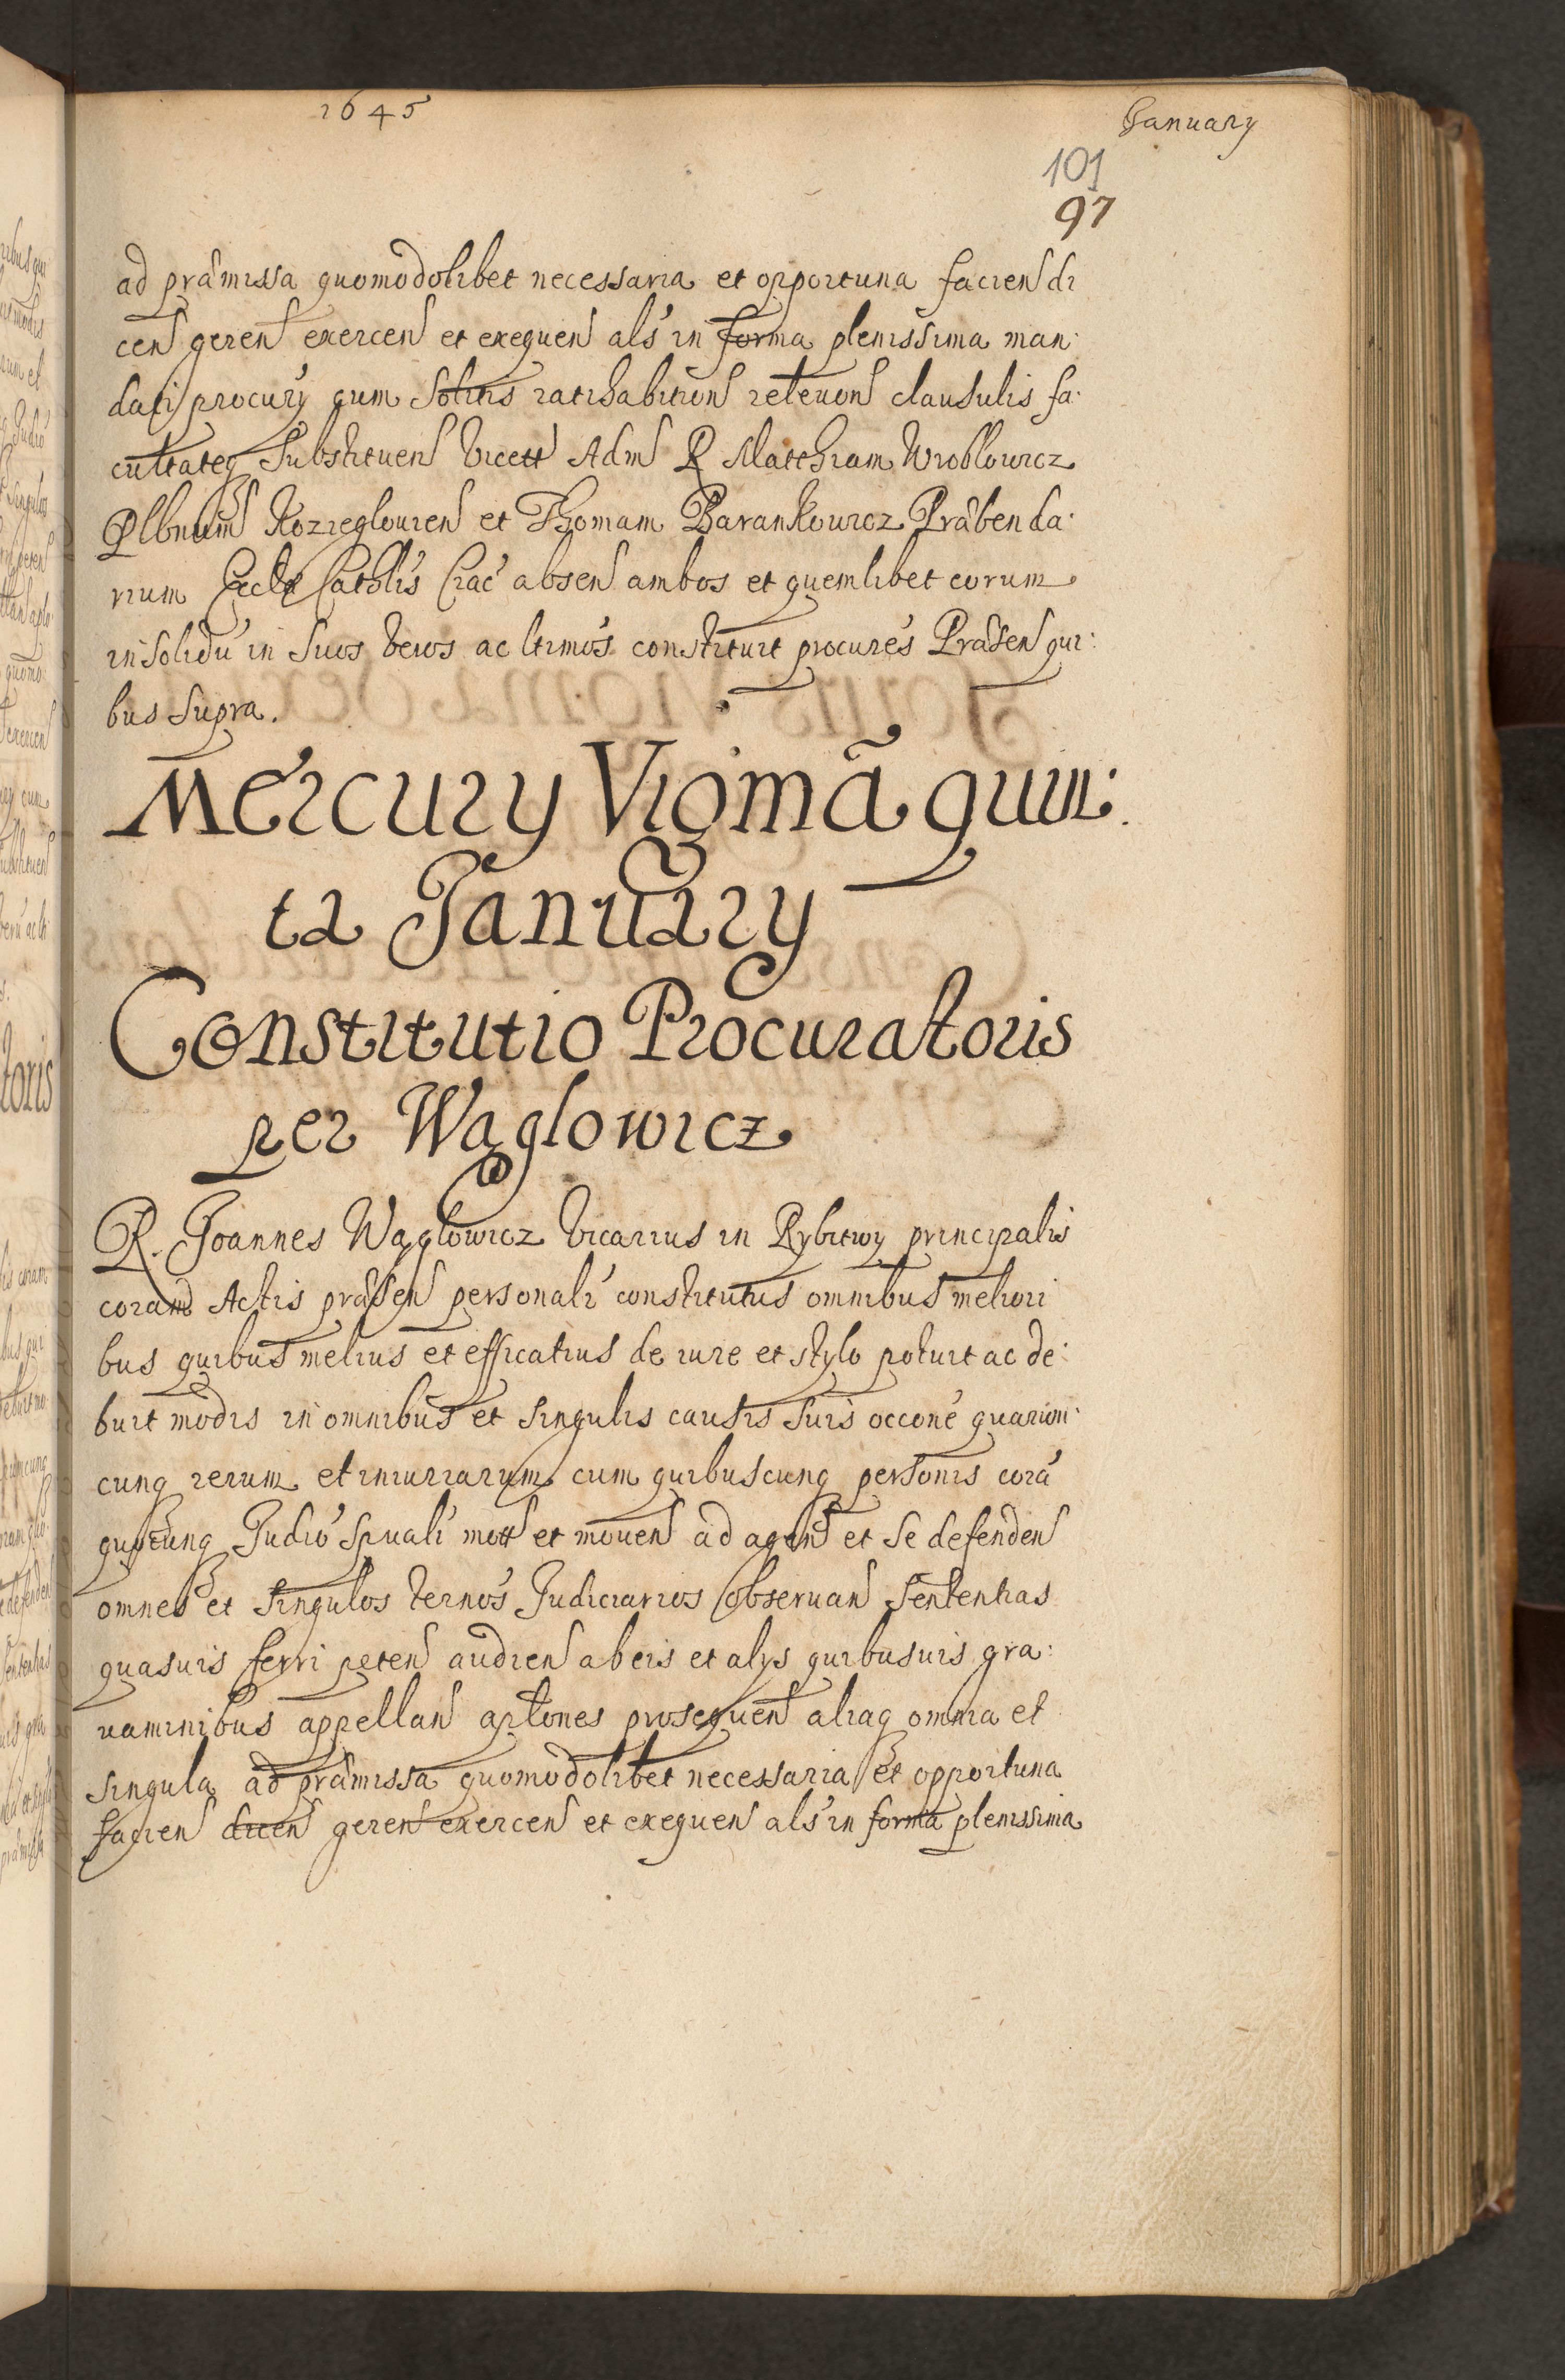 1645
January
101
97
ad præmissa quomodolibet necessaria et opportuna facien di
cen geren exercen et exequen als in forma plenissima man:
dati procury cum solitis ratihabition releuon clausulis fa:
cultateq substituen Vicett Adm R Matthiam Wroblowicz
Plbnum Kozieglouien et Thomam Barankowicz Præbenda:
rium Eccle Catolis Crac absen ambos et quemlibet eorum
in solidu in suos veros ac ltimos constituit procures Præsen qui:
bus supra.
Mercury Vigimã quin:
ta January
Constitutio Procuratoris
per Wąglowicz
R. Joannes Wąglowicz Vicarius in Rybitwy principalis
coram Actis præsen personalr constitutus omnibus meliori
bus quibus melius et efficatius de iure et stylo potuit ac de:
buit modis in omnibus et singulis causis suis occone quarum:
cunq rerum et iniuriarum cum quibuscunq personis corã
quocunq Judio Spuali mott et mouen ad agen et se defenden
omnes et singulos ternos Judiciarios obseruan sententias
quasuis ferri peten audien ab eis et alys quibusuis gra:
uaminibus appellan aptones prosequen aliaq omnia et
singula ad præmissa quomodolibet necessaria et opportuna
facien dicen geren exercen et exequen als in forma plenissima